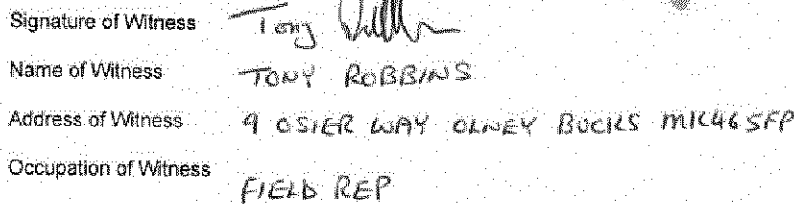 Signature of Witness Tony
Name of Witness TONY ROBBINS
Address of Witness 9 OSIER WAY OLNEY BUCKS MK46 5FP
Occupation of Witness FIELD REP